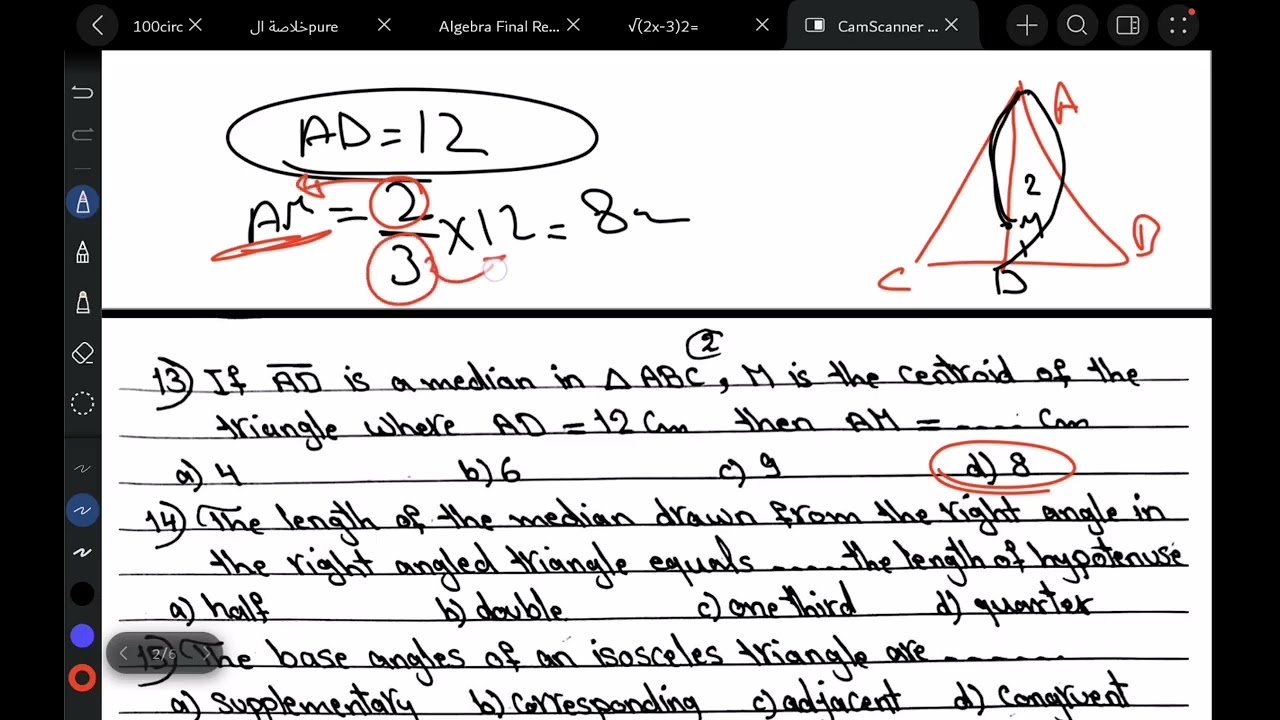 100circ
خلاصة الpure
Algebra Final Re...
√(2x-3)2=
CamScanner ...
AD=12
AM = 2/3 ×12 = 8
A
2
M
1
C
D
B
2
13) If A̅D̅ is a median in △ ABC, M is the centroid of the
triangle where AD = 12 Cm then AM = ..... Cm
a) 4 b) 6 c) 9 d) 8
14) The length of the median drawn from the right angle in
the right angled triangle equals ..... the length of hypotenuse
a) half b) double c) one third d) quarter
2/6
15) The base angles of an isosceles triangle are ........
a) supplementary b) corresponding c) adjacent d) congruent